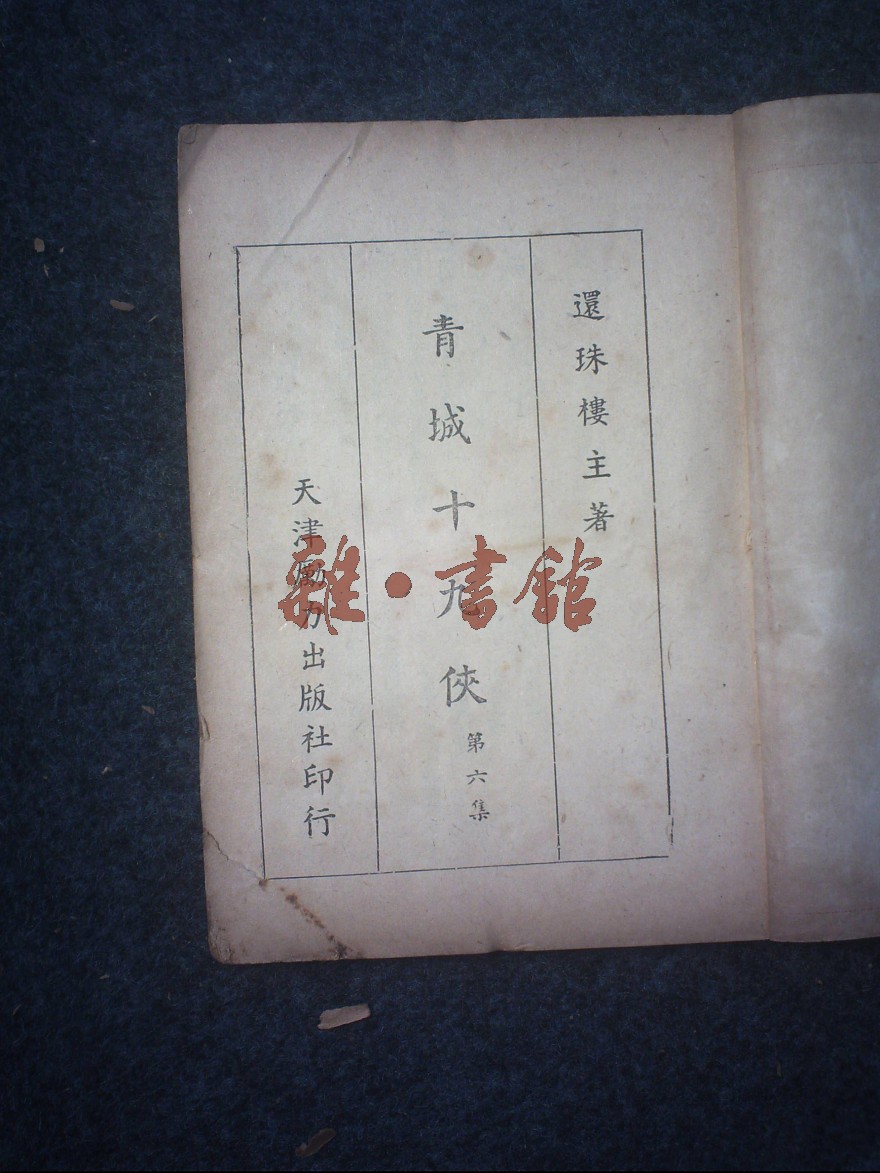 還珠樓主著
青城十九俠 第六集
天津勵力出版社印行
雜·書館